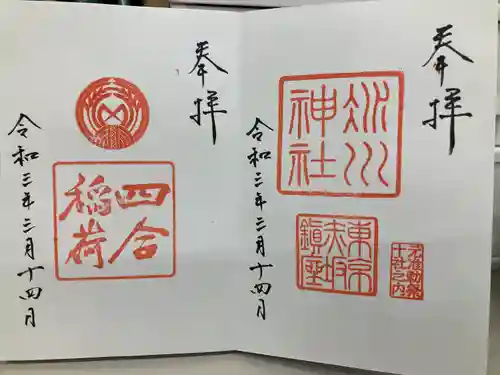 奉拝
氷川
神社
東京
赤坂
鎮座
准勅祭
十社之内
令和三年三月十四日
奉拝
四合
稲荷
令和三年三月十四日